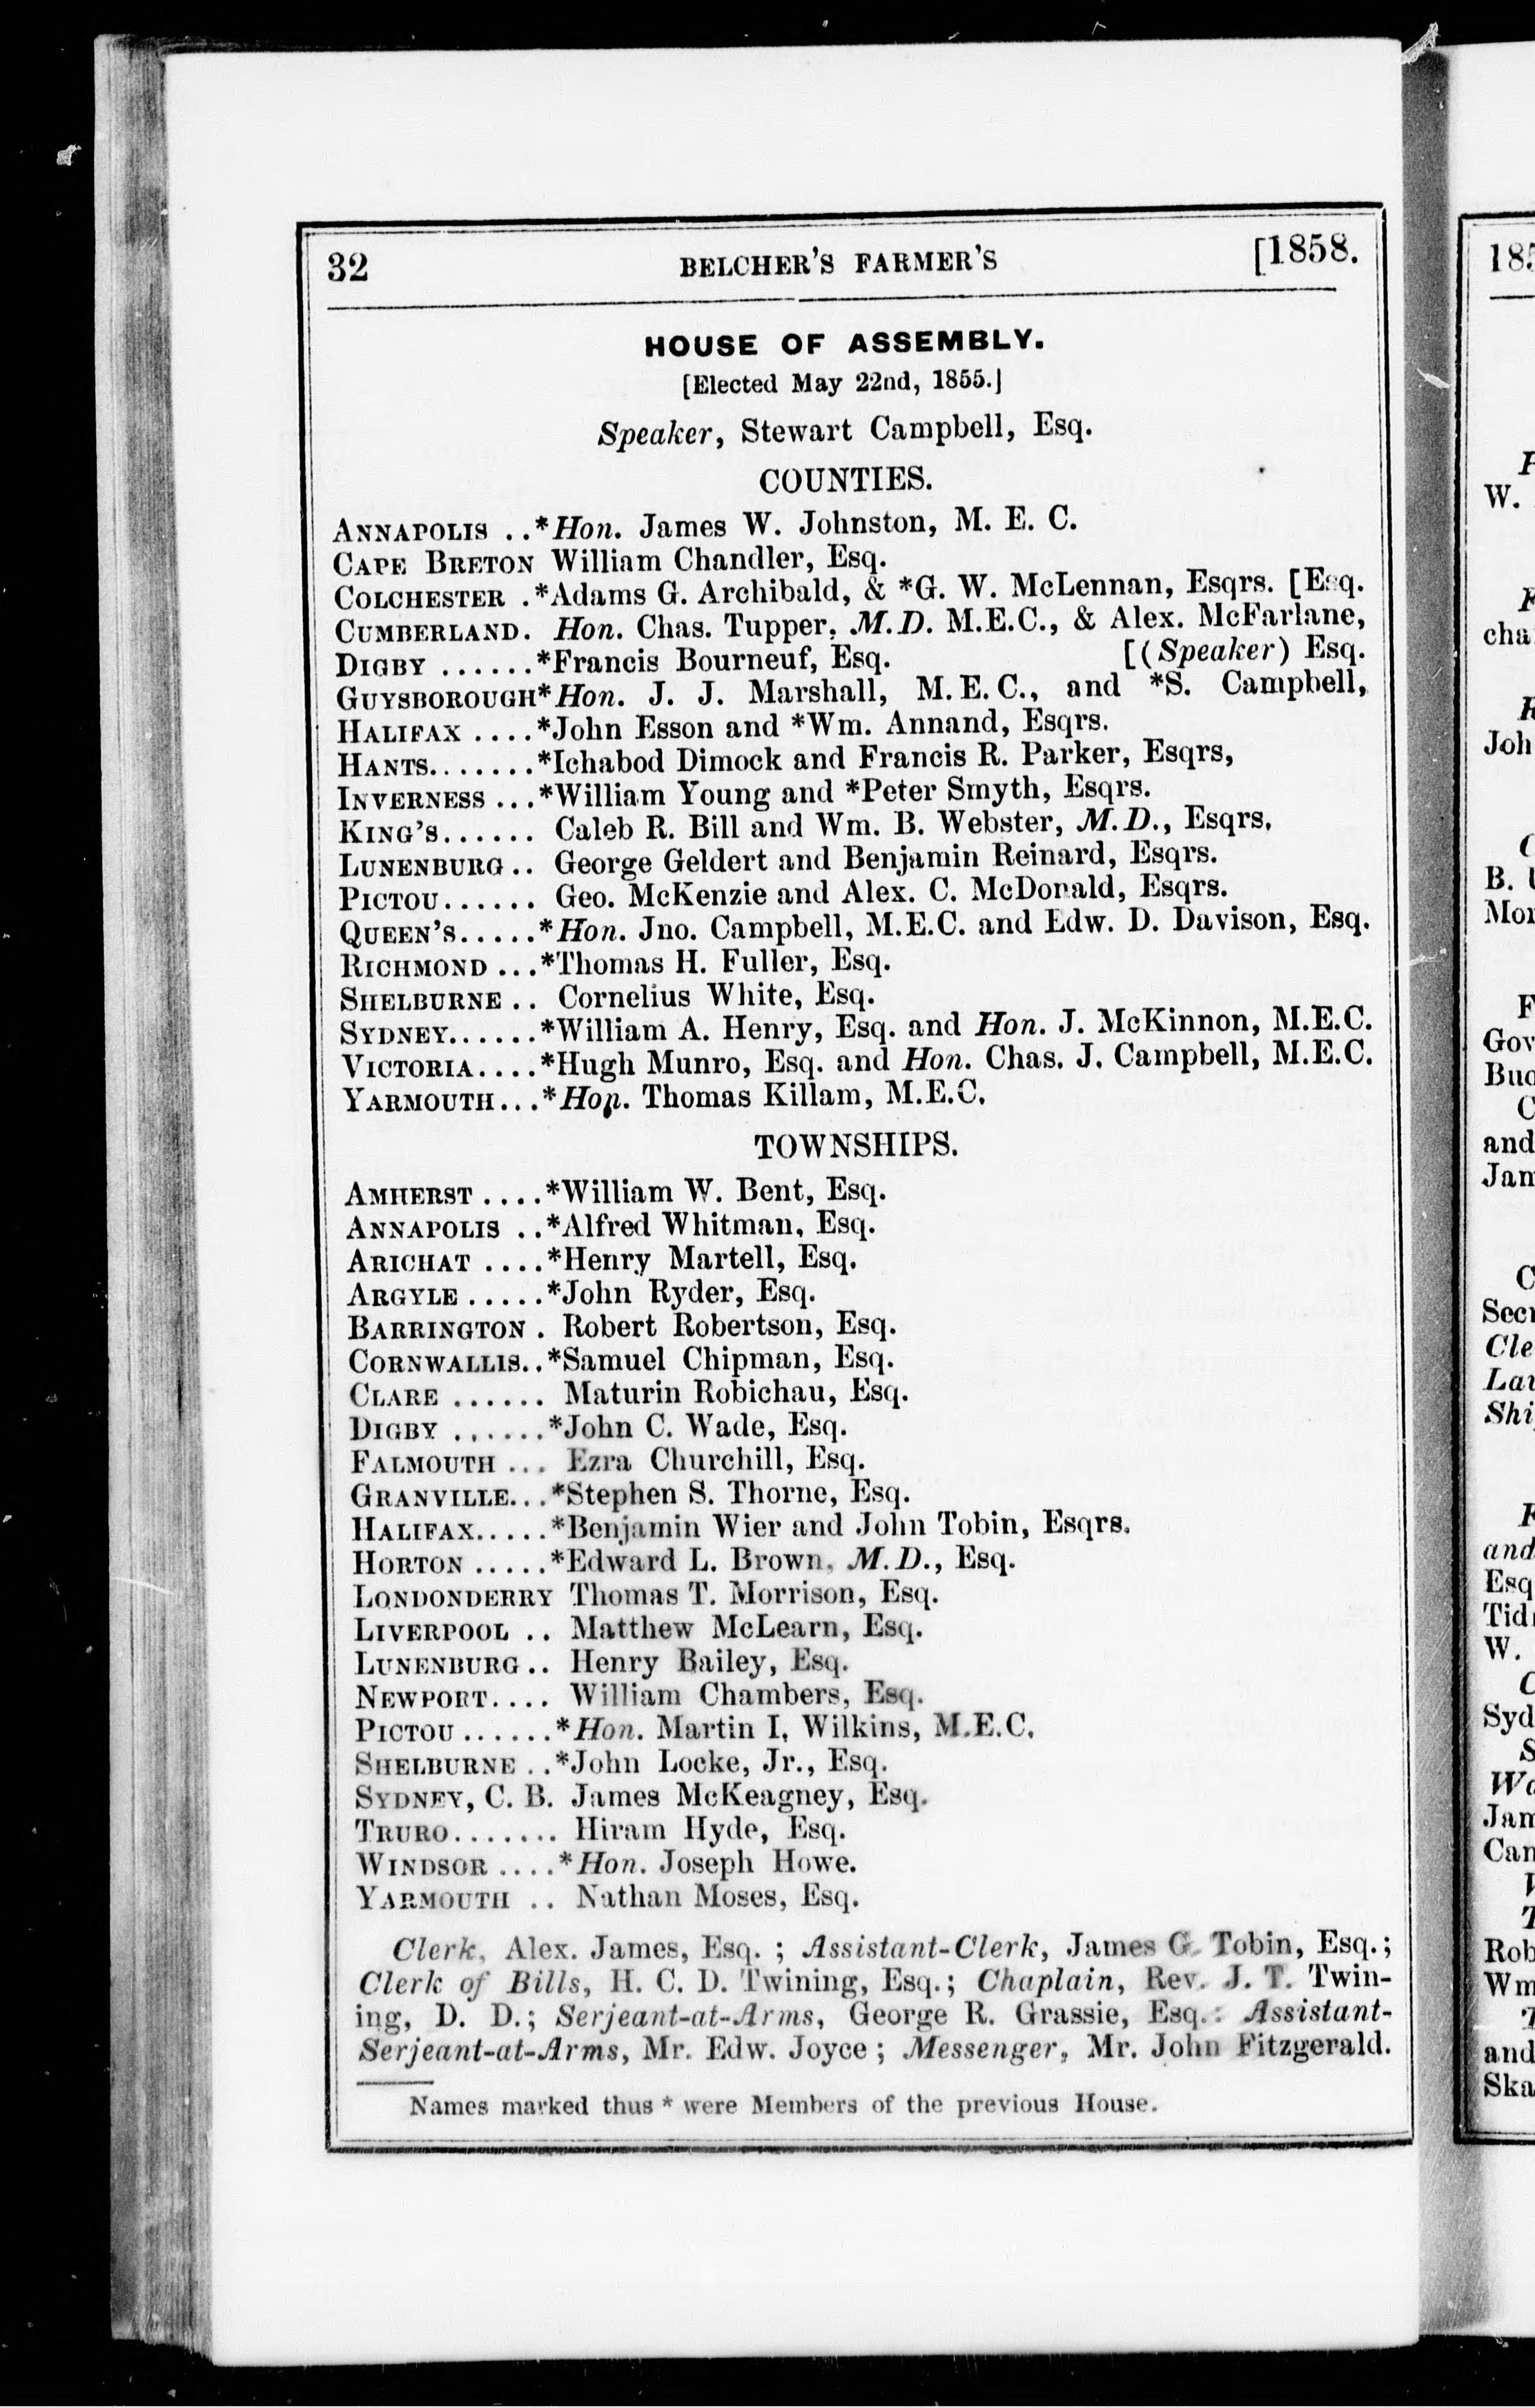 32 BELCHER'S FARMER'S [1858.
HOUSE OF ASSEMBLY.
[Elected May 22nd, 1855.]
Speaker, Stewart Campbell, Esq.
COUNTIES.
ANNAPOLIS ..*Hon. James W. Johnston, M. E. C.
CAPE BRETON William Chandler, Esq.
COLCHESTER .*Adams G. Archibald, & *G. W. McLennan, Esqrs. [Esq.
CUMBERLAND. Hon. Chas. Tupper, M.D. M.E.C., & Alex. McFarlane,
DIGBY ......*Francis Bourneuf, Esq. [(Speaker) Esq.
GUYSBOROUGH*Hon. J. J. Marshall, M.E.C., and *S. Campbell,
HALIFAX ....*John Esson and *Wm. Annand, Esqrs.
HANTS.......*Ichabod Dimock and Francis R. Parker, Esqrs,
INVERNESS ...*William Young and *Peter Smyth, Esqrs.
KING'S...... Caleb R. Bill and Wm. B. Webster, M.D., Esqrs,
LUNENBURG.. George Geldert and Benjamin Reinard, Esqrs.
PICTOU...... Geo. McKenzie and Alex. C. McDonald, Esqrs.
QUEEN'S.....*Hon. Jno. Campbell, M.E.C. and Edw. D. Davison, Esq.
RICHMOND ...*Thomas H. Fuller, Esq.
SHELBURNE .. Cornelius White, Esq.
SYDNEY......*William A. Henry, Esq. and Hon. J. McKinnon, M.E.C.
VICTORIA....*Hugh Munro, Esq. and Hon. Chas. J. Campbell, M.E.C.
YARMOUTH...*Hon. Thomas Killam, M.E.C.
TOWNSHIPS.
AMHERST ....*William W. Bent, Esq.
ANNAPOLIS ..*Alfred Whitman, Esq.
ARICHAT ....*Henry Martell, Esq.
ARGYLE .....*John Ryder, Esq.
BARRINGTON . Robert Robertson, Esq.
CORNWALLIS..*Samuel Chipman, Esq.
CLARE ...... Maturin Robichau, Esq.
DIGBY ......*John C. Wade, Esq.
FALMOUTH ... Ezra Churchill, Esq.
GRANVILLE...*Stephen S. Thorne, Esq.
HALIFAX.....*Benjamin Wier and John Tobin, Esqrs.
HORTON .....*Edward L. Brown, M.D., Esq.
LONDONDERRY Thomas T. Morrison, Esq.
LIVERPOOL .. Matthew McLearn, Esq.
LUNENBURG.. Henry Bailey, Esq.
NEWPORT.... William Chambers, Esq.
PICTOU ......*Hon. Martin I. Wilkins, M.E.C.
SHELBURNE ..*John Locke, Jr., Esq.
SYDNEY, C. B. James McKeagney, Esq.
TRURO........ Hiram Hyde, Esq.
WINDSOR ....*Hon. Joseph Howe.
YARMOUTH .. Nathan Moses, Esq.
Clerk, Alex. James, Esq. ; Assistant-Clerk, James G. Tobin, Esq.;
Clerk of Bills, H. C. D. Twining, Esq.; Chaplain, Rev. J. T. Twin-
ing, D. D.; Serjeant-at-Arms, George R. Grassie, Esq.: Assistant-
Serjeant-at-Arms, Mr. Edw. Joyce ; Messenger, Mr. John Fitzgerald.
Names marked thus * were Members of the previous House.
W.
cha
Joh
B.
Mor
Gov
Buc
and
Jan
Secr
Cle
Lav
Shi
and
Esq
Tid
W.
Syd
Wa
Jan
Can
Rob
Wm
and
Ska